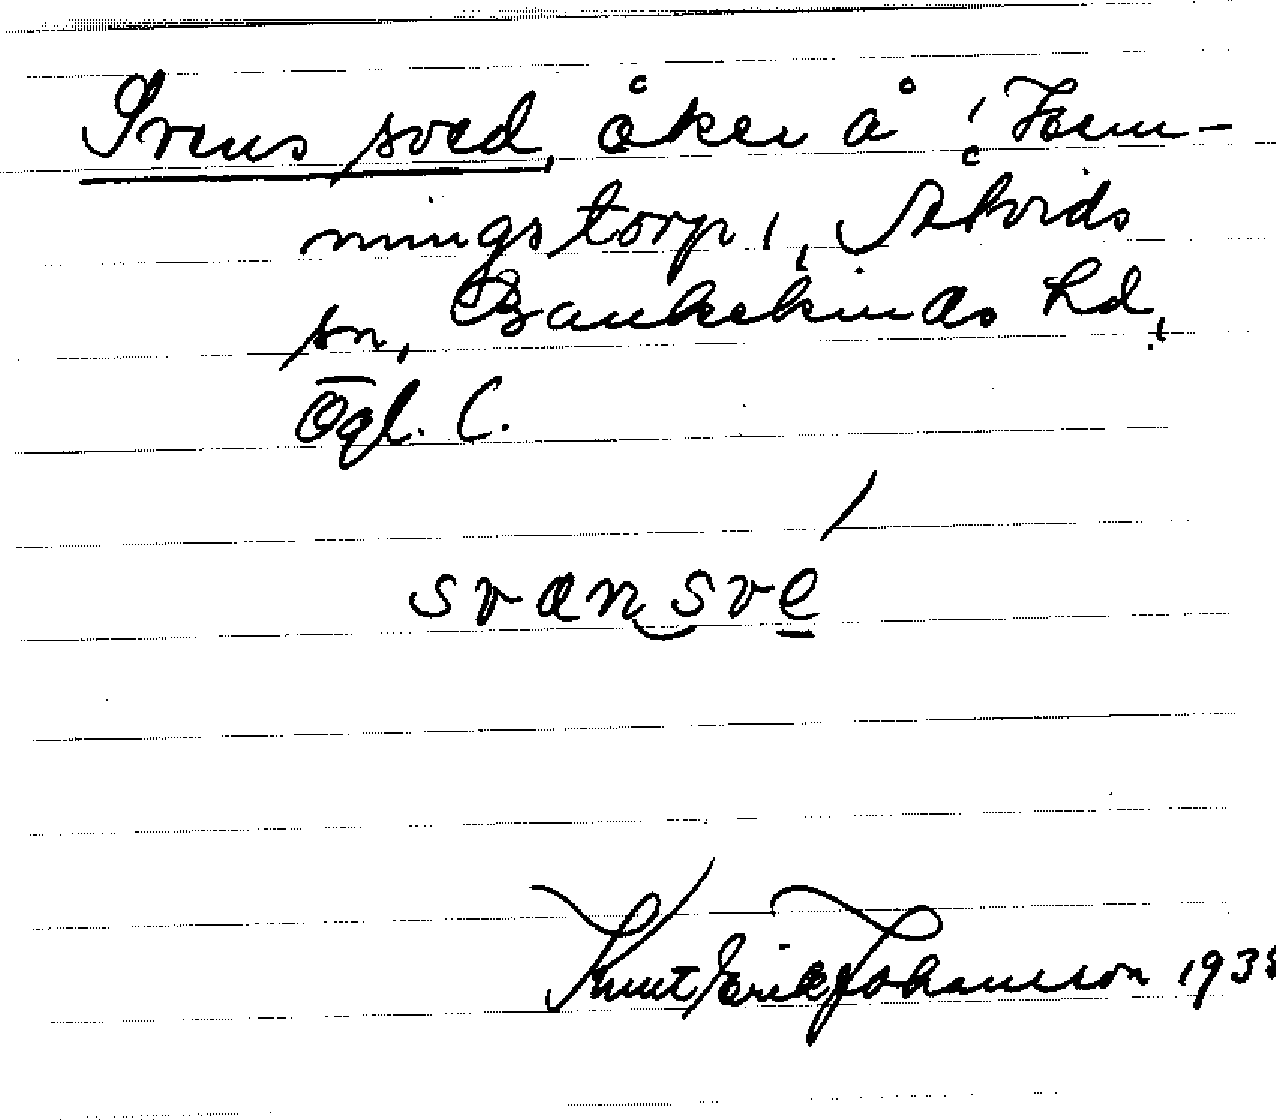 Svens sved, åker å Hem-
mingstorp 1, Åtvids
sn, Bankekinds hd,
Ögl. l.
svansve
Knut Erik Johansson 193